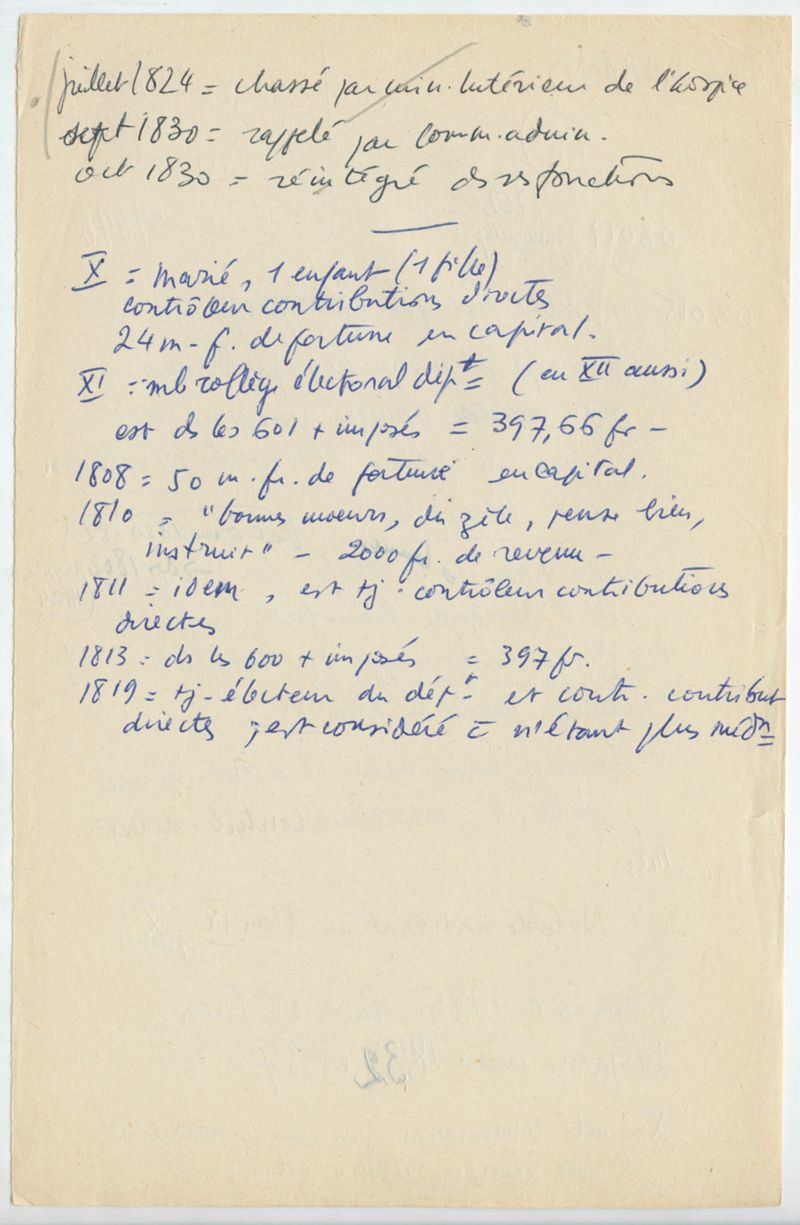 juillet 1824 = chassé par min. Intérieur de l'hospice
sept 1830 = rappelé par Comm. admin.
oct 1830 = réintégré ds ses fonctions
X = marié, 1 enfant (1 fille)
contrôleur contributions directes
24 m. f. de fortune en capital.
XI = mb collège électoral dépt (en XII aussi)
est ds les 601 + imposés = 397,66 fr -
1808 = 50 m. fr. de fortune en capital.
1810 = "bonnes moeurs, du zèle, pense bien,
instruit" - 2000 fr. de revenu -
1811 = idem, est tj. contrôleur contributions
directes
1813 = ds les 600 + imposés = 397 fr.
1819 = tj. électeur du dépt et contr. contribut
directes ; est considéré c n'étant plus médn